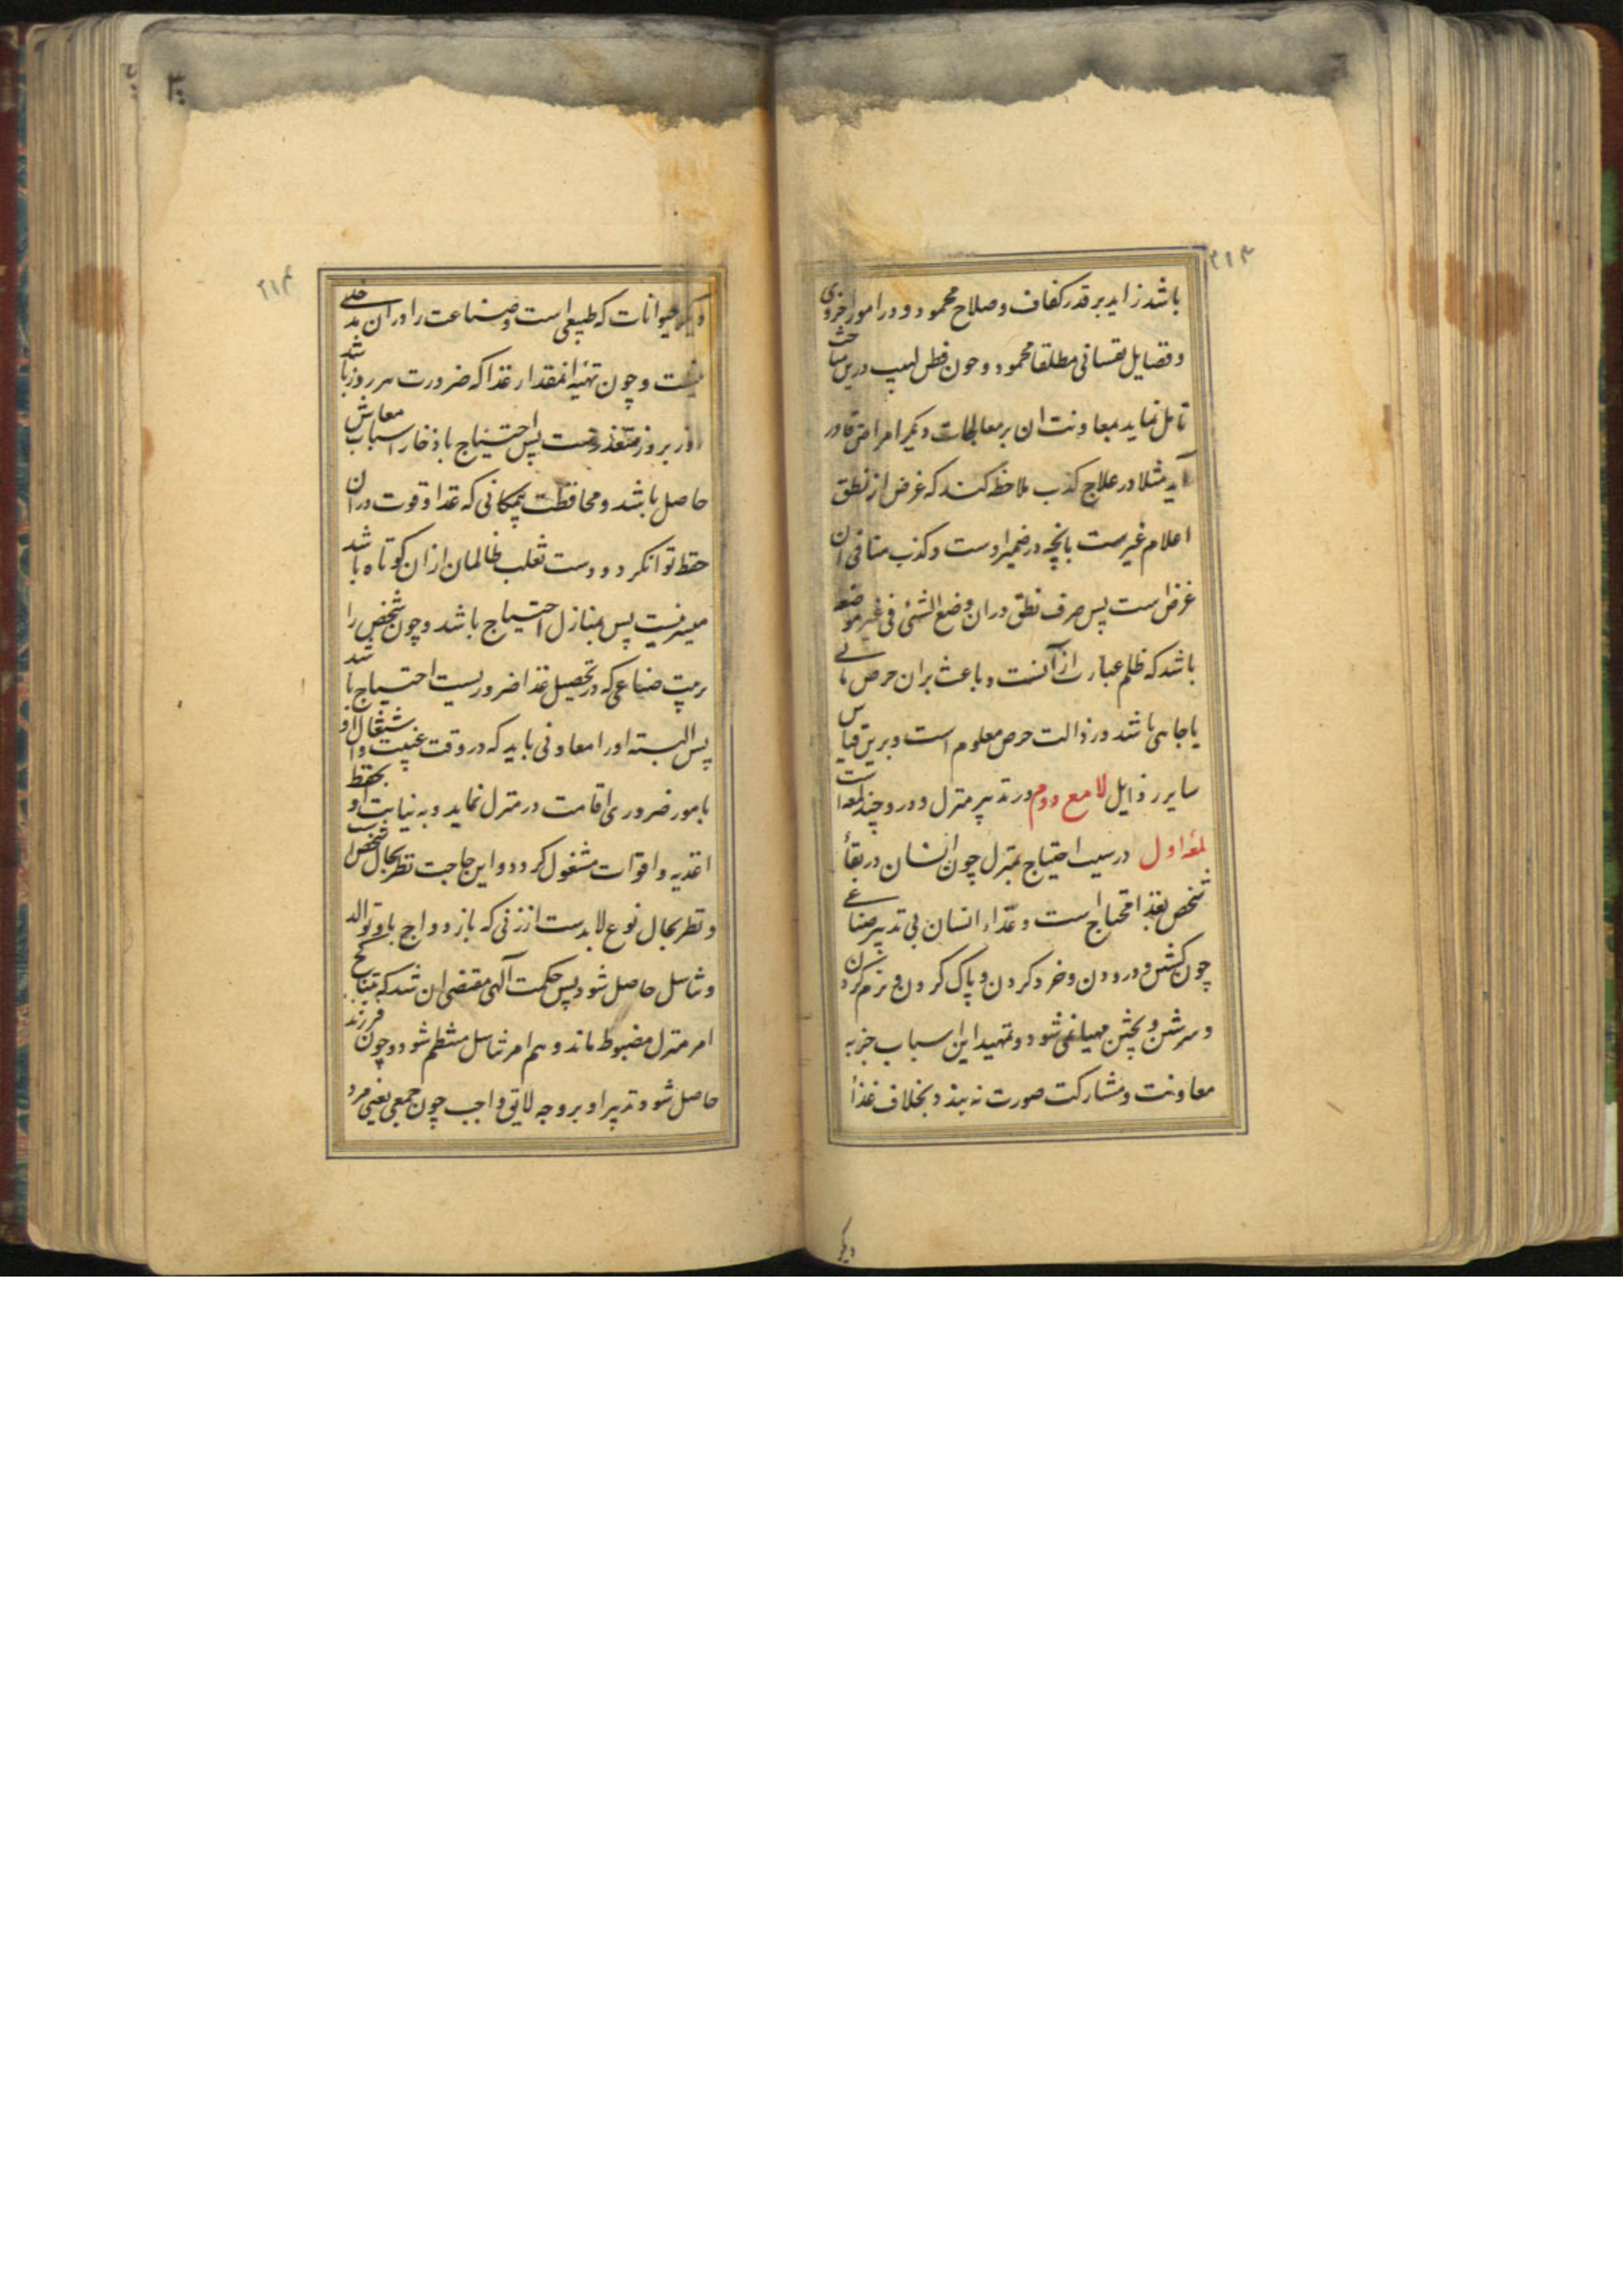 ۲۱۳
باشد زاید بر قدر کفاف و صلاح محمود و در امور اخروی
و فضایل نفسانی مطلقا محمود و چون فطن لبیب درین مباحث
تامل نماید بمعاونت ان بر معالجات دیگر امراض قادر
آید مثلا در علاج کذب ملاحظه کند که غرض از نطق
اعلام غیرست بانچه در ضمیر اوست و کذب منافی ان
غرض است پس صرف نطق دران وضع الشئی فی غیر موضعه
باشد که ظلم عبارت از آنست و باعث بران حرص مالی
یا جاهی باشد و رذالت حرص معلوم است و برین قیاس
سایر رذایل لامع دوم در تدبیر منزل و درو چند لمعه است
لمعه اول در سبب احتیاج بمنزل چون انسان در بقأ
شخص بغذا محتاج است و غذاء انسان بی تدبیر صناعی
چون کشتن و درودن و خرد کردن و پاک کردن و نرم کردن
و سرشتن و پختن مهیا نمی شود و تمهید این اسباب جز به
معاونت و مشارکت صورت نه بندد بخلاف غذأ
دیگر
۲۱۴
دیگر حیوانات که طبیعی است و صناعت را دران مدخلی
نیست و چون تهیه انمقدار غذا که ضرورت هر روز باشد
روز بروز متعذرست پس احتیاج باذخار اسباب معاش
حاصل باشد و محافظت بمکانی که غذا و قوت دران
حفظ توانکرد و دست تغلب ظالمان ازان کوتاه باشد
میسر نیست پس بمنازل احتیاج باشد و چون شخص را
برتیب صناعی که در تحصیل غذا ضروریست احتیاج باشد
پس البته اورا معاونی باید که در وقت غیبت و اشتغال او
بامور ضروری اقامت در منزل نماید و به نیابت او بحفظ
اغذیه و اقوات مشغول کردد و این حاجت نظر بحال شخص است
و نظر بحال نوع لابدست از زنی که بازدواج با او توالد
و تناسل حاصل شود پس حکمت آلهی مقتضی ان شد که بتناکح
امر منزل مضبوط ماند و هم امر تناسل منتظم شود و چون فرزند
حاصل شود و تدبیر او بر وجه لایق واجب چون جمعی یعنی مرد